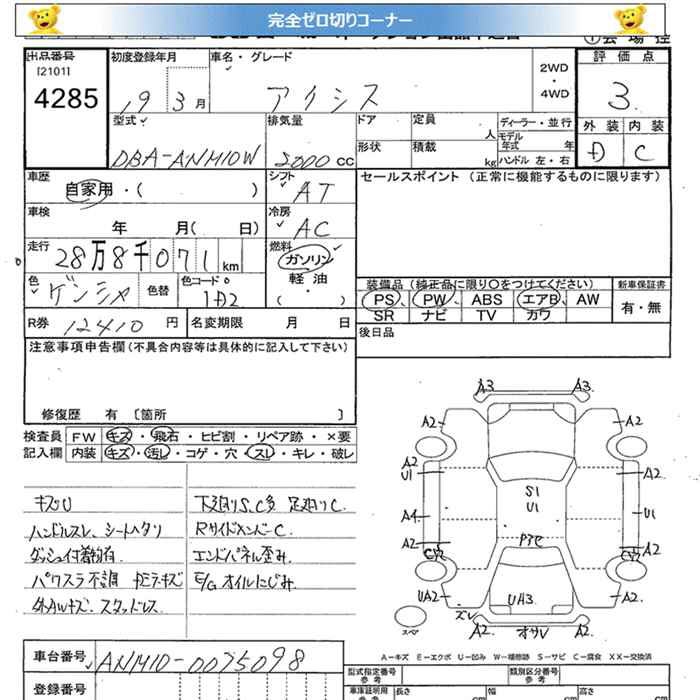 完全ゼロ切りコーナー
①会場控
出品番号 初度登録年月 車名・グレード 2WD・4WD 評価点
[2101]
4285 19 3月 アクシス 3
外装 内装
D C
型式 DBA-ANM10W
排気量 2000 cc
ドア 定員 人
ディーラー・並行
モデル年式 年
形状 積載 kg
ハンドル 左・右
車歴 自家用・( )
シフト AT
セールスポイント (正常に機能するものに限ります)
車検 年 月( 日)
冷房 AC
走行 28万8千071km
燃料 ガソリン・軽油・( )
色 ゲンシャ 色替 色コード 1D2
装備品 (純正品に限り○をつけてください) 新車保証書
PS PW ABS エアB AW 有・無
SR ナビ TV カワ
R券 12410 円 名変期限 月 日
後日品
注意事項申告欄(不具合内容等は具体的に記入して下さい)
修復歴 有 〔箇所 〕
検査員 FW キズ・飛石・ヒビ割・リペア跡・×要
記入欄 内装 キズ・汚し・コゲ・穴・スレ・キレ・破レ
キズU
ハンドルスレ、シートヘタリ
ダッシュ付着物有
パワスラ不調
外AWキズ、スタッドレス
下廻りS.C多 足廻りC
RサイドメンバーC
エンドパネル歪み
E/Gオイルにじみ
A3 A3
A2 A2
A2 U1 A2
S1 U1
A1 U1
A2 A2
UA2 UH3 A2
ズレ
スペア A2 オサV A2
A-キズ E-エクボ U-凹み W-補修跡 S-サビ C-腐食 XX-交換済
車台番号 ANM10-0075098
型式指定番号 参考 類別区分番号 参考
登録番号
車庫証明用 参考 長さ cm 幅 cm 高さ cm